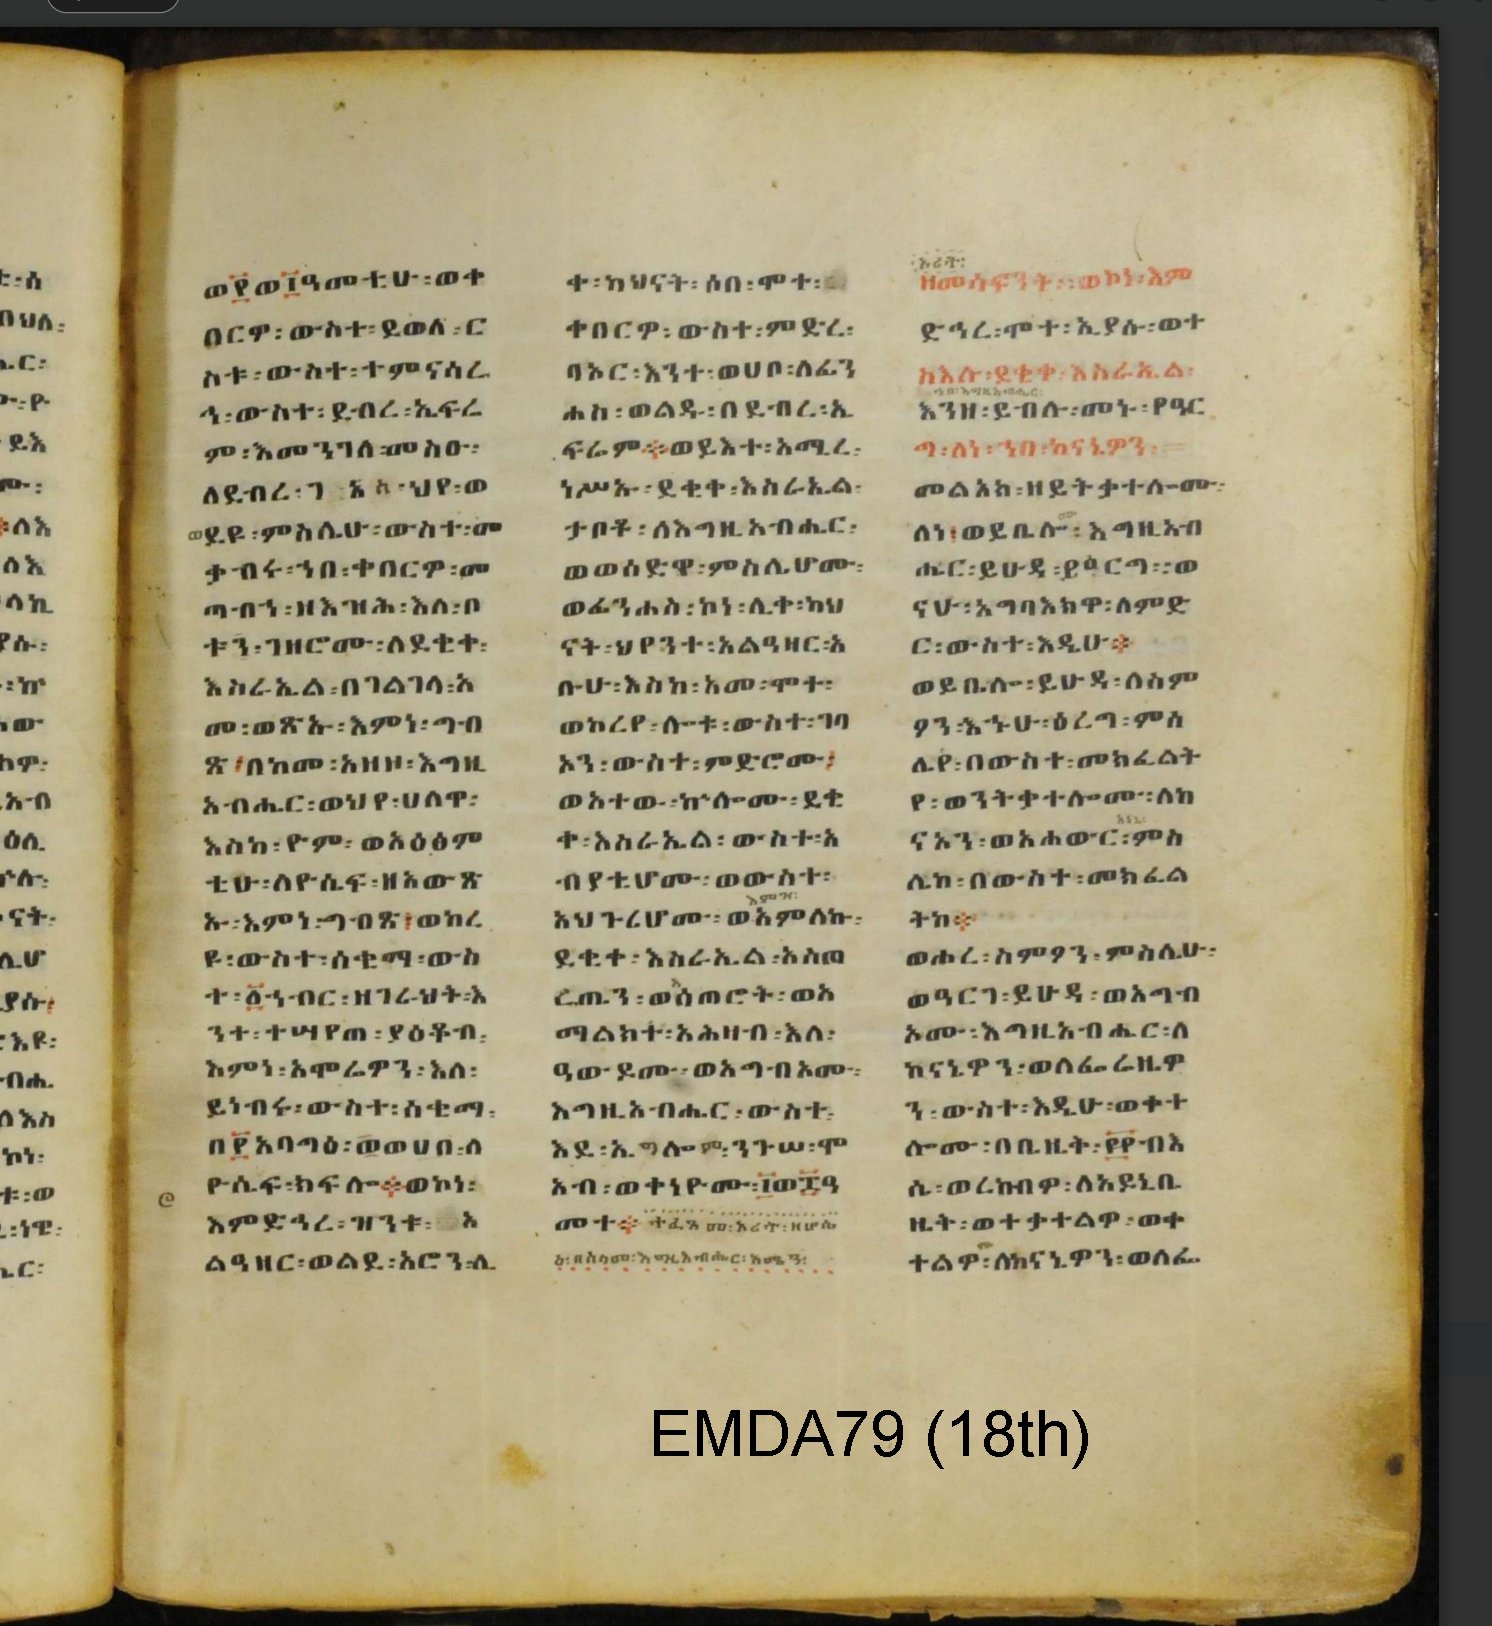 ወ፻ወ፲ዓመቲሁ፡ወተ
በርዎ፡ውስተ፡ደወለ፡ር
ስቱ፡ውስተ፡ተምናሰሬ
ኅ፡ውስተ፡ደብረ፡ኤፍሬ
ም፡እመንገለ፡መስዑ፡
ለደብረ፡ገ
ወደዩ፡ምስሌሁ፡ውስተ፡መ
ቃብሩ፡ኀበ፡ቀበርዎ፡መ
ጣብኀ፡ዘእዝሕ፡እለ፡ቦ
ቱን፡ገዘሮሙ፡ለደቂቀ፡
እስራኤል፡በገልገላ፡አ
መ፡ወጽኡ፡እምነ፡ግብ
ጽ፤በከመ፡አዘዞ፡እግዚ
አብሔር፡ወህየ፡ሀለዋ፡
እስከ፡ዮም፡ወአዕፅም
ቲሁ፡ለዮሴፍ፡ዘአውጽ
ኡ፡እምነ፡ግብጽ፤ወከረ
ዩ፡ውስተ፡ሰቂማ፡ውስ
ተ፡፩ኀብር፡ዘገራህት፡እ
ንተ፡ተሣየጠ፡ያዕቆብ፡
እምነ፡አሞሬዎን፡እለ፡
ይነብሩ፡ውስተ፡ሰቂማ፡
በ፻አባግዕ፡ወወሀበ፡ለ
ዮሴፍ፡ክፍሎ፨ወኮነ፡
እምድኅረ፡ዝንቱ፡ አ
ልዓዘር፡ወልደ፡አሮን፡ሊ
ቀ፡ካህናት፡ሰበ፡ሞተ፡
ቀበርዎ፡ውስተ፡ምድረ፡
ባኦር፡እንተ፡ወሀቦ፡ለፊን
ሐስ፡ወልዱ፡በደብረ፡ኤ
ፍሬም፨ወይእተ፡አሚረ፡
ነሥኡ፡ደቂቀ፡እስራኤል፡
ታቦቶ፡ለእግዚአብሔር፡
ወወሰድዋ፡ምስሌሆሙ፡
ወፊንሐስ፡ኮነ፡ሊቀ፡ካህ
ናት፡ህየንተ፡አልዓዛር፡አ
ቡሁ፡እስከ፡አመ፡ሞተ፡
ወከረየ፡ሎቱ፡ውስተ፡ገባ
ኦን፡ውስተ፡ምድሮሙ፤
ወአተው፡ኵሎሙ፡ደቂ
ቀ፡እስራኤል፡ውስተ፡አ
ብያቲሆሙ፡ወውስተ፡
አህጉሪሆሙ፡ወአምለኩ፡
ደቂቀ፡እስራኤል፡አስጠ
ረጢን፡ወሰጠሮት፡ወአ
ማልክተ፡አሕዛብ፡እለ፡
ዓውዶሙ፡ወአግብአሙ፡
እግዚአብሔር፡ውስተ፡
እደ፡ኤግሎም፡ንጉሠ፡ሞ
አብ፡ወቀነዮሙ፡፲ወ፰ዓ
መተ፨ተፈጸመ፡ኦሪት፡ዘሆሴ
ዕ፡ በሰላመ፡እግዚአብሔር፡አሜን፡
ኦሪት፡
ዘመሳፍንት፡፡ወኮነ፡እም
ድኅረ፡ሞተ፡ኢያሱ፡ወተ
ስእሉ፡ደቂቀ፡እስራኤል፡
ኀበ፡እግዚአብሔር፡
እንዘ፡ይብሉ፡መኑ፡የዓር
ግ፡ለነ፡ኀበ፡ከናኔዎን፡
መልአክ፡ዘይትቃተሎሙ፡
ለነ፤ወይቤሎ፡እግዚአብ
ሔር፡ይሁዳ፡ይዕርግ፡፡ወ
ናሁ፡አግባእክዋ፡ለምድ
ር፡ውስተ፡እዴሁ፨
ወይቤሎ፡ይሁዳ፡ለስም
ዖን፡እኁሁ፡ዕረግ፡ምስ
ሌየ፡በውስተ፡መክፈልት
የ፡ወንትቃተሎሙ፡ለከ
ናኦን፡ወአሐውር፡ምስ
ሌከ፡በውስተ፡መክፈል
ትከ፨
ወሐረ፡ስምዖን፡ምስሌሁ፡
ወዓርገ፡ይሁዳ፡ወአግብ
ኦሙ፡እግዚአብሔር፡ለ
ከናኔዎን፡ወለፌሬዜዎ
ን፡ውስተ፡እዴሁ፡ወቀተ
ሎሙ፡በቤዜት፡፻፻ብእ
ሴ፡ወረከብዎ፡ለአዶኒቤ
ዜት፡ወተቃተልዎ፡ወቀ
ተልዎ፡ለከናኔዎን፡ወለፌ
EMDA79 (18th)